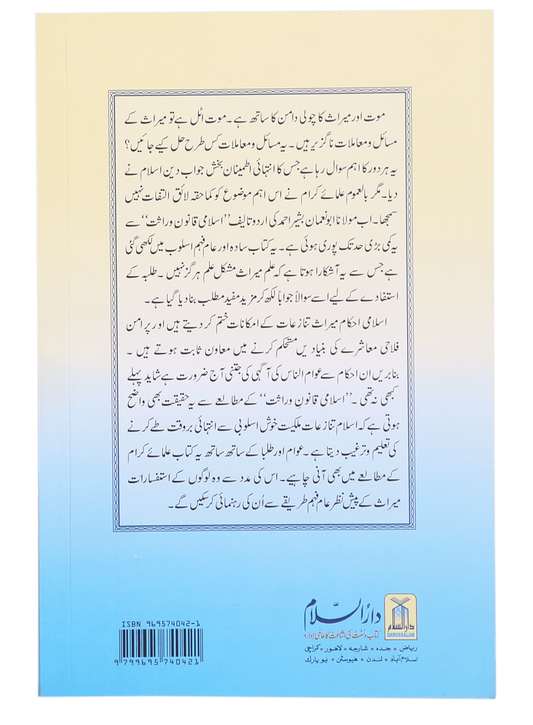 موت اور میراث کا چولی دامن کا ساتھ ہے۔ موت اٹل ہے تو میراث کے
مسائل و معاملات ناگزیر ہیں۔ یہ مسائل و معاملات کس طرح حل کیے جائیں؟
یہ ہر دور کا اہم سوال رہا ہے جس کا انتہائی اطمینان بخش جواب دین اسلام نے
دیا۔ مگر بالعموم علمائے کرام نے اس اہم موضوع کو کماحقہ لائق التفات نہیں
سمجھا۔ اب مولانا ابو نعمان بشیر احمد کی اردو تالیف ’’اسلامی قانون وراثت‘‘ سے
یہ کمی بڑی حد تک پوری ہوئی ہے۔ یہ کتاب سادہ اور عام فہم اسلوب میں لکھی گئی
ہے جس سے یہ آشکارا ہوتا ہے کہ علم میراث مشکل علم ہرگز نہیں۔ طلبہ کے
استفادے کے لیے اسے سوالاً جواباً لکھ کر مزید مفید مطلب بنا دیا گیا ہے۔
اسلامی احکام میراث تنازعات کے امکانات ختم کر دیتے ہیں اور پرامن
فلاحی معاشرے کی بنیادیں مستحکم کرنے میں معاون ثابت ہوتے ہیں۔
بنابریں ان احکام سے عوام الناس کی آگہی کی جتنی آج ضرورت ہے شاید پہلے
کبھی نہ تھی۔ ’’اسلامی قانونِ وراثت‘‘ کے مطالعے سے یہ حقیقت بھی واضح
ہوتی ہے کہ اسلام تنازعات ملکیت خوش اسلوبی سے انتہائی بروقت طے کرنے
کی تعلیم و ترغیب دیتا ہے۔ عوام اور طلبا کے ساتھ ساتھ یہ کتاب علمائے کرام
کے مطالعے میں بھی آنی چاہیے۔ اس کی مدد سے وہ لوگوں کے استفسارات
میراث کے پیش نظر عام فہم طریقے سے اُن کی رہنمائی کر سکیں گے۔
ISBN 969574042-1
9 799695 740421
دارُالسّلام
کتاب و سنت کی اشاعت کا عالمی ادارہ
ریاض • جدہ • شارجہ • لاهور • کراچی
اسلام آباد • لندن • هیوسٹن • نیو یارک
دارالسلام
DARUSSALAM